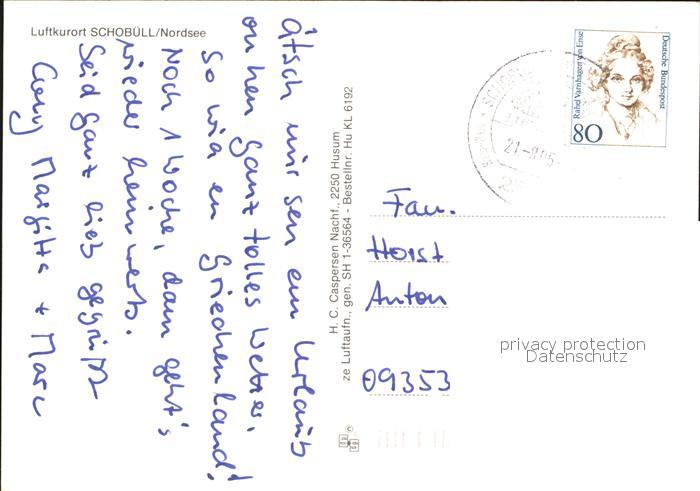 Luftkurort SCHOBÜLL/Nordsee
Ätsch wir sen em Urlaub
on hen ganz tolles Wetter,
so wia en Griechenland!
Noch 1 Woche, dann geht's
wieder heimwerts.
Seid ganz lieb gegrüßt
Margitta + Marc
H. C. Caspersen Nachf., 2250 Husum
ze Luftaufn., gen. SH 1-36564 - Bestellnr. Hu KL 6192
Deutsche Bundespost
Rahel Varnhagen von Ense
80
Fam.
Horst
Anton
09353
privacy protection
Datenschutz